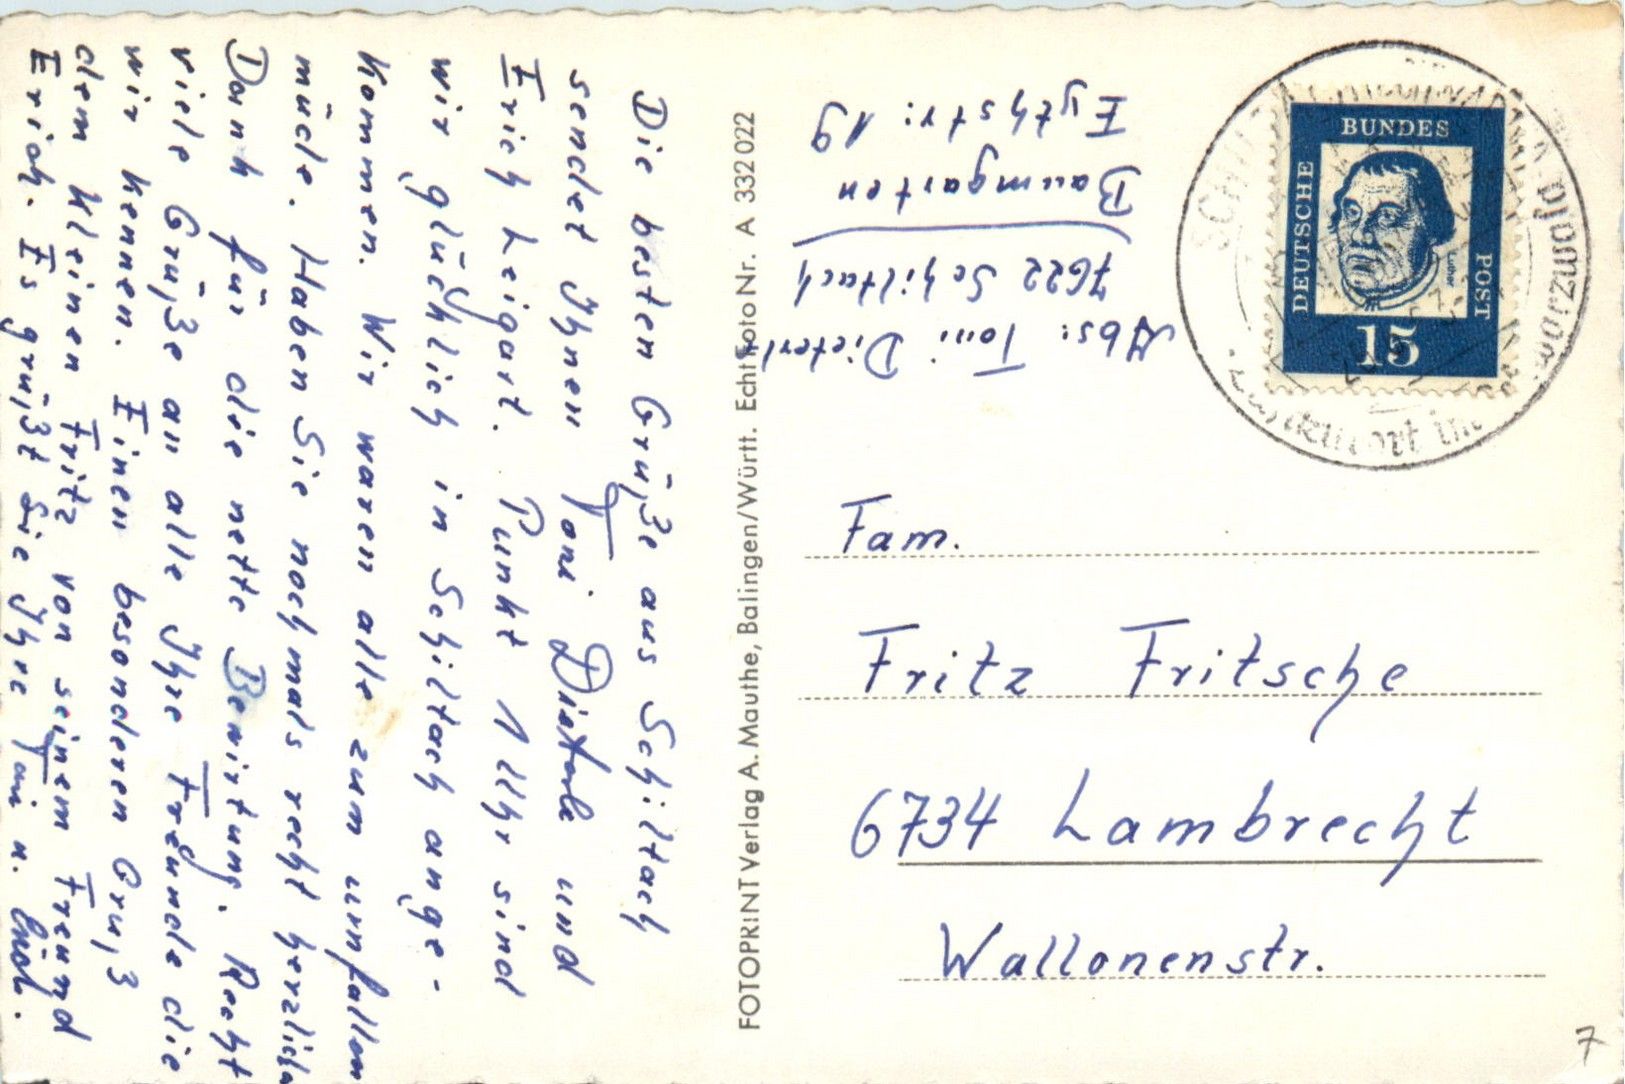 Die besten Grüße aus Schiltach
sendet Ihnen Toni Dieterle und
Erich Leigart. Punkt 1 Uhr sind
wir glücklich in Schiltach ange-
kommen. Wir waren alle zum umfallen
müde. Haben Sie nochmals recht herzlich
Dank für die nette Bewirtung. Recht
viele Grüße an alle Ihre Freunde die
wir kennen. Einen besonderen Gruß
dem kleinen Fritz von seinem Freund
Erich. Es grüßt Sie Ihre Toni u. Erich.
FOTOPRINT Verlag A. Mauthe, Balingen/Württ. Echt Foto Nr. A 332022
Abs: Toni Dieterle
7622 Schiltach
Baumgarten
Eythstr: 19
DEUTSCHE
BUNDES
POST
Luther
15
Fam.
Fritz Fritsche
6734 Lambrecht
Wallonenstr.
7